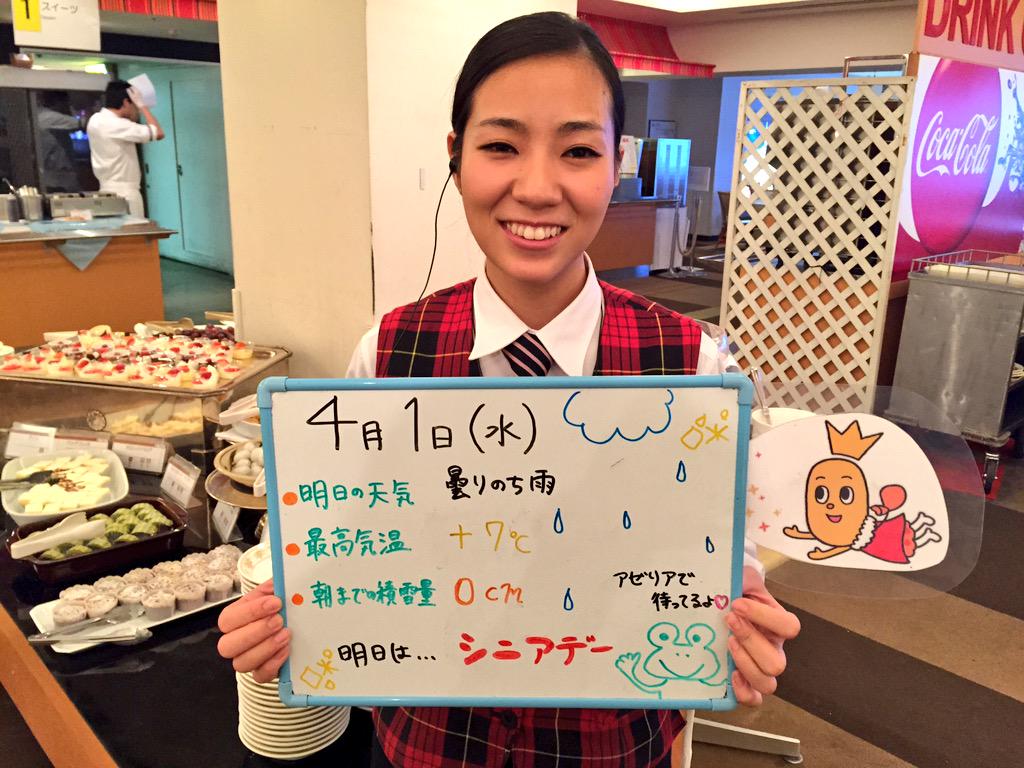 1 スイーツ
DRINK
Coca-Cola
4月1日(水)
●明日の天気 曇りのち雨
●最高気温 +7℃
●朝までの積雪量 0cm
アゼリアで
待ってるよ♡
明日は... シニアデー